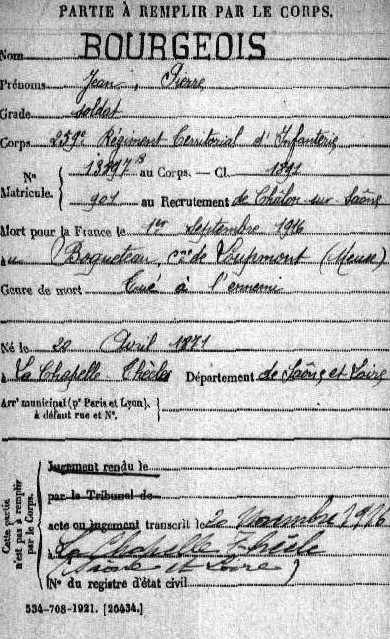 PARTIE À REMPLIR PAR LE CORPS.
Nom BOURGEOIS
Prénoms Jean, Pierre
Grade soldat
Corps 259e Régiment Territorial d'Infanterie
No 13897 au Corps. — Cl. 1891
Matricule. 901 au Recrutement de Châlon-sur-Saône
Mort pour la France le 1er Septembre 1916
à Boqueteau, cne de Loupmont (Meuse)
Genre de mort Tué à l'ennemi
Né le 20 Avril 1871
à La Chapelle Thècle Département de Saône et Loire
Arrt municipal (pr Paris et Lyon),
à défaut rue et No.
Cette partie
n'est pas à remplir
par le Corps.
Jugement rendu le
par le Tribunal de
acte ou jugement transcrit le 20 Novembre 1916
à La Chapelle Thècle
(Saône et Loire)
No du registre d'état civil
534-708-1921. [26434.]